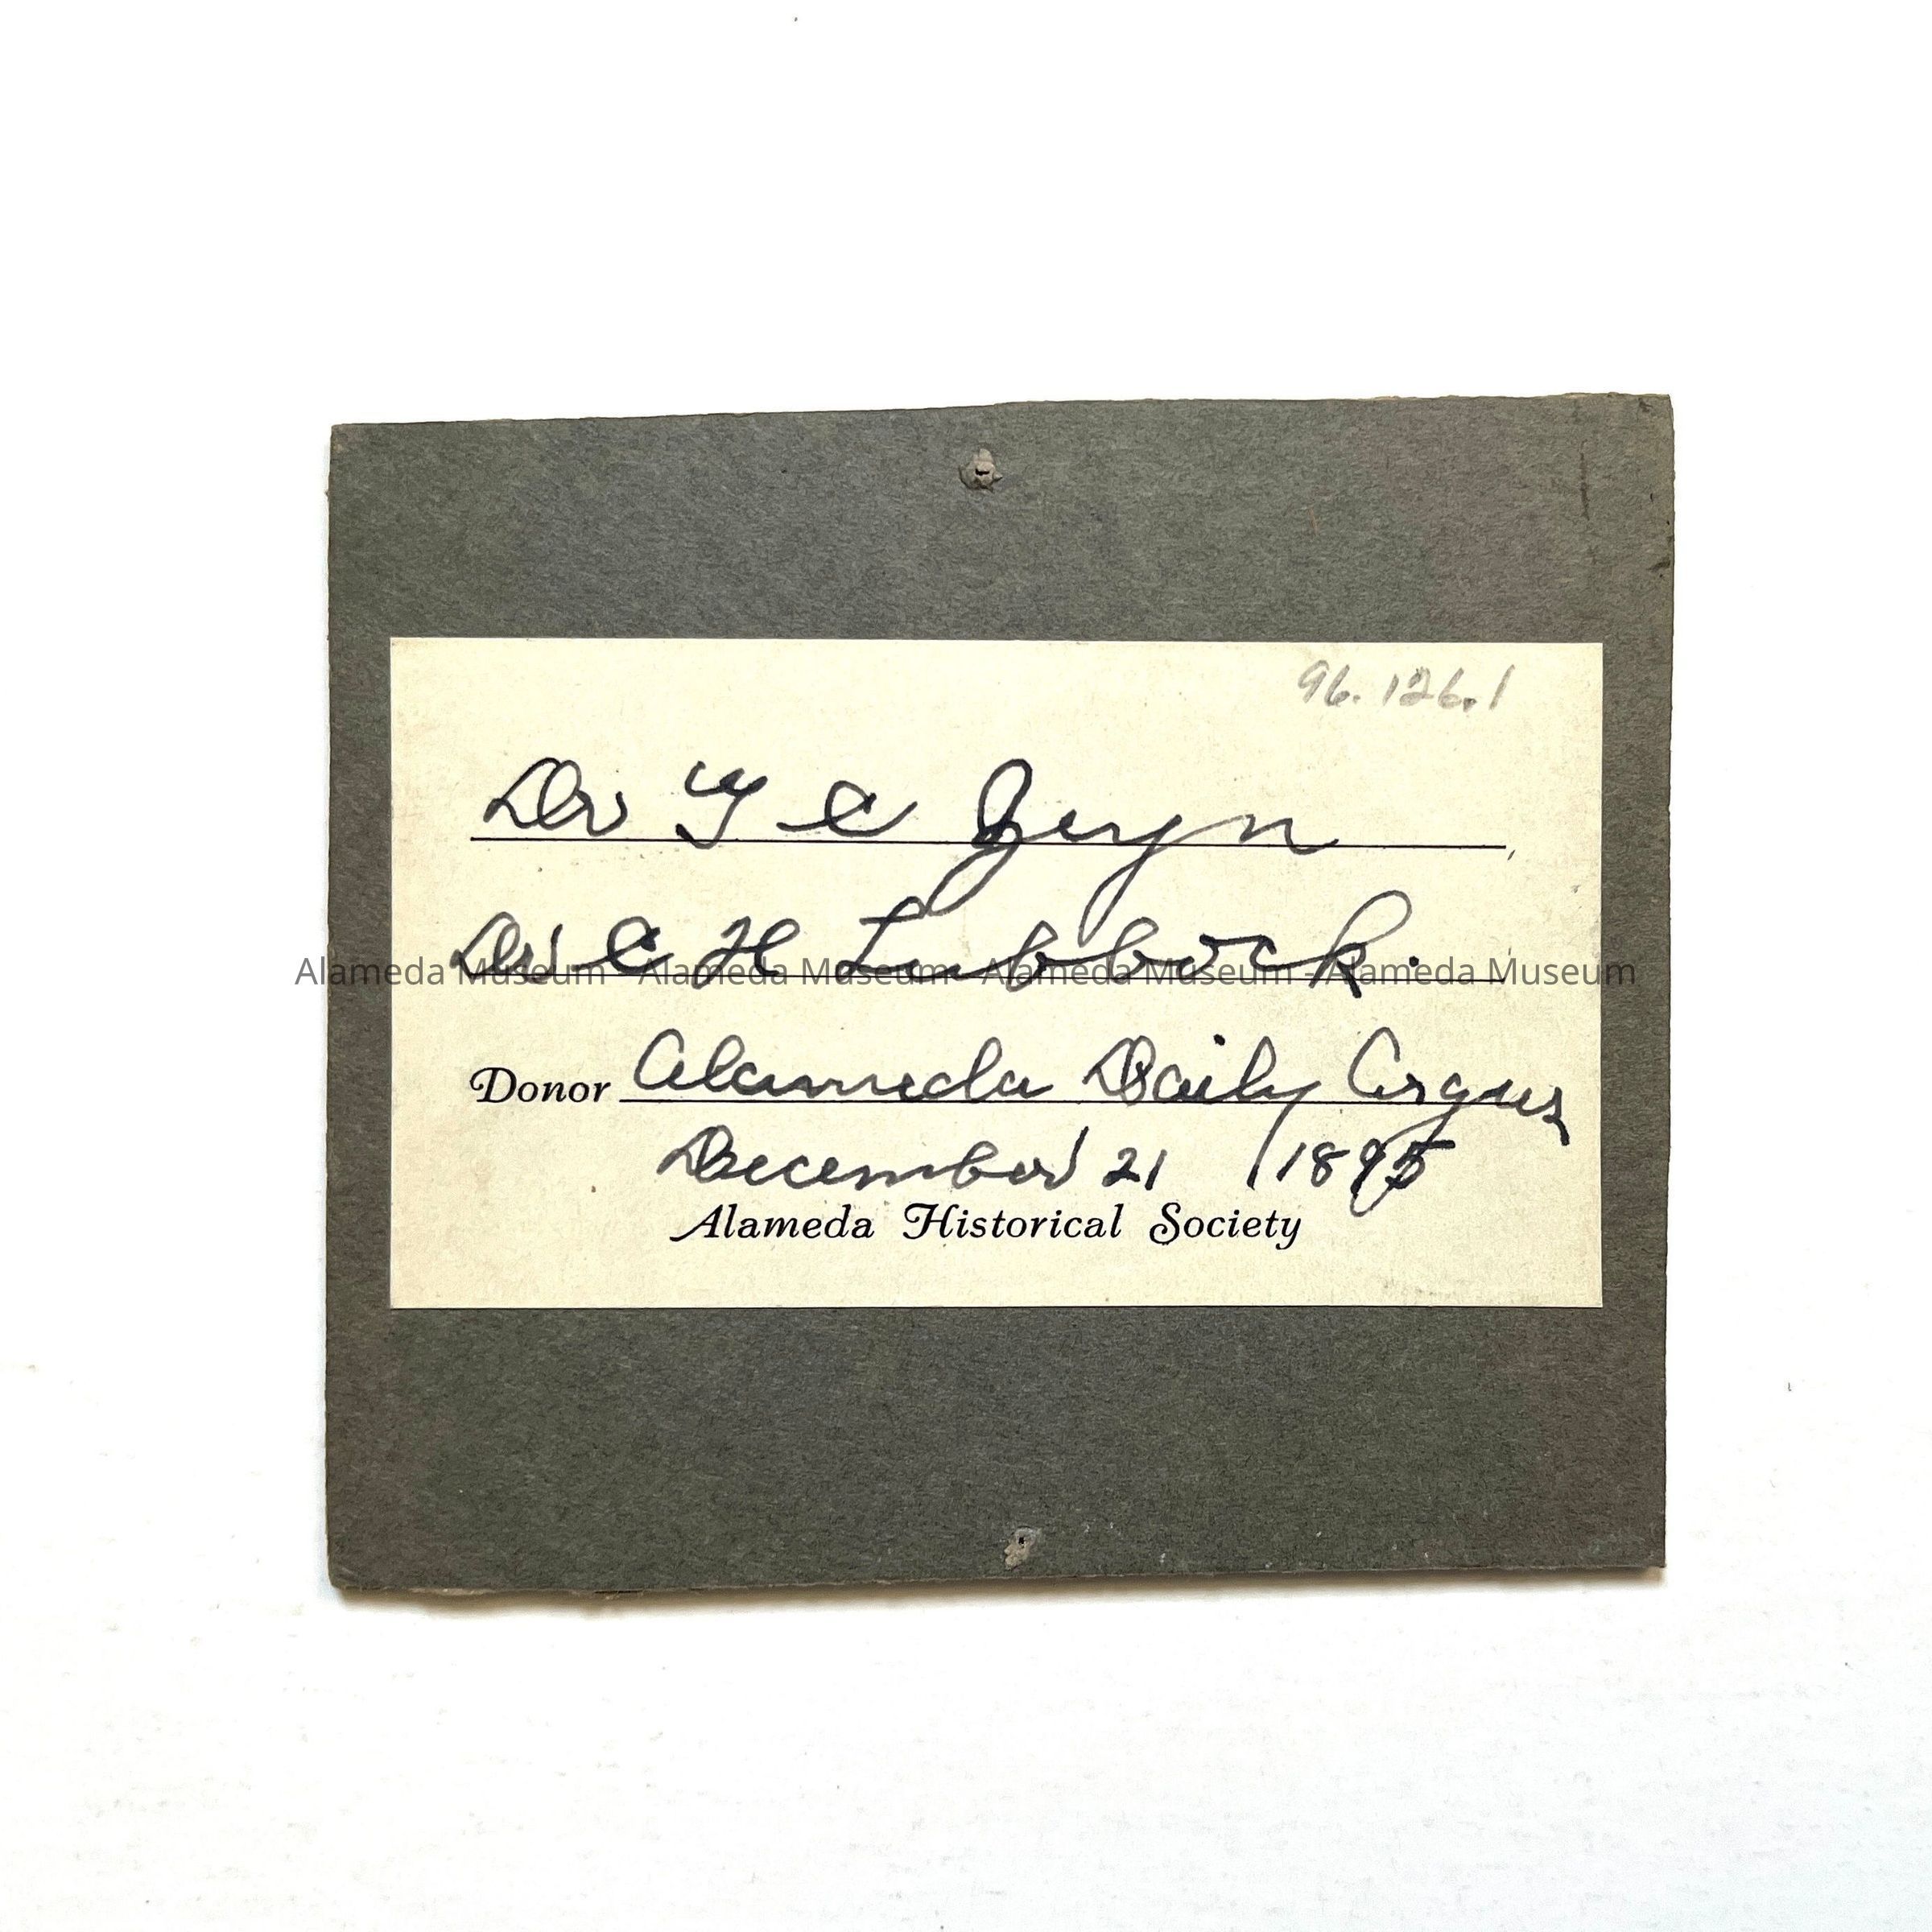 96. 126.1
Dr
Dr C H Lubbock.
Alameda Museum - Alameda Museum - Alameda Museum - Alameda Museum
Donor Alameda Daily Argus
December 21 1895
Alameda Historical Society